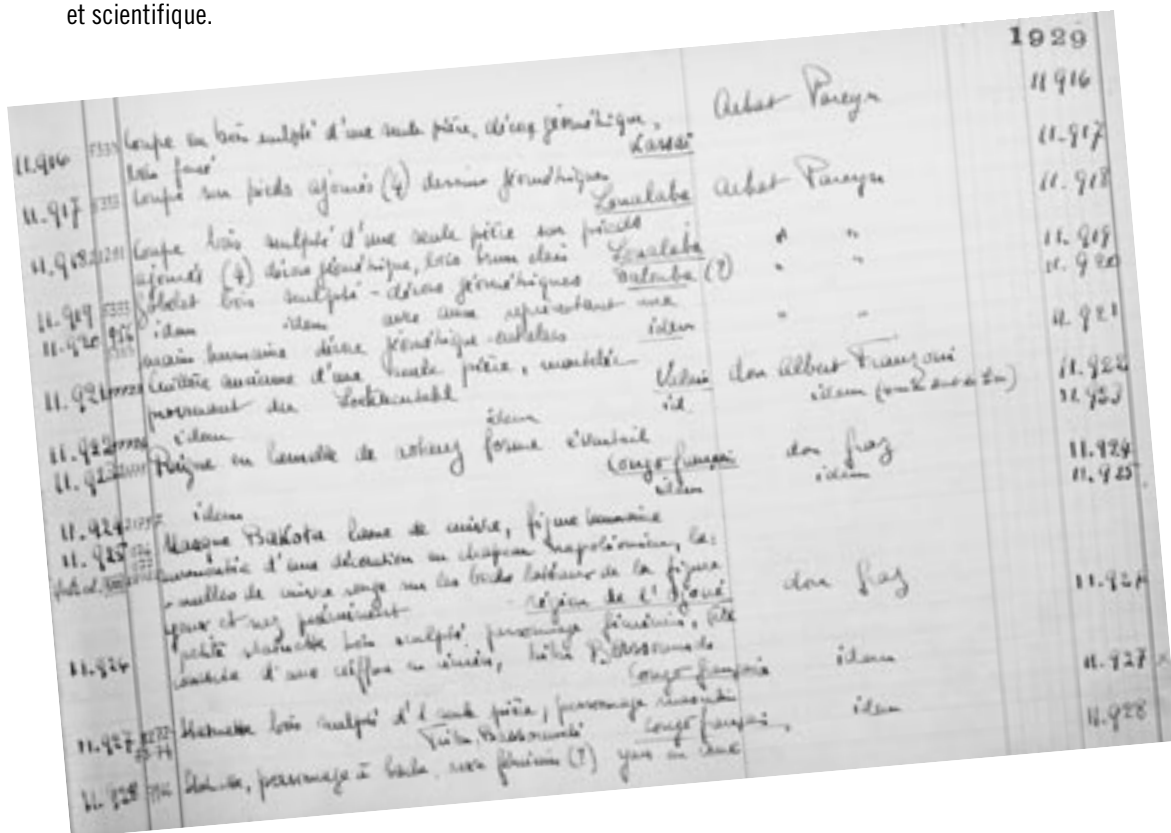 et scientifique.
1929
11.916 Coupe en bois sculpté d'une seule pièce, décor géométrique, Achat Pareyn 11916
bois foncé Kassaï
11.917 Coupe sur pieds ajourés (4) dessins géométriques Loualaba Achat Pareyn 11.917
11.918 Coupe bois sculpté d'une seule pièce sur pieds " " 11.918
ajourés (4) décors géométrique, bois brun clair Loualaba
11.919 Gobelet bois sculpté - décors géométriques Baluba (?) " " 11.919
11.920 idem idem avec anse représentant une 11.920
main humaine décor géométrique idem " "
11.921 Cuillère ancienne d'une seule pièce, 11.921
provenant du Lötschental Valais don Albert Franzoni
11.922 idem id. idem 11.922
11.923 Peigne en forme éventail 11.923
Congo français don Graz
11.924 idem idem idem 11.924
11.925 Masque BaKota lame de cuivre, figure humaine 11.925
surmontée d'une décoration en chapeau napoléonien, la-
melles de cuivre rouge sur les bords latéraux de la figure
yeux et nez proéminent - région de l'Ogoué don Graz
11.926 petite statuette bois sculpté, personnage féminin, tête 11.926
d'une coiffure en cimier, tribu Bassoundi
Congo français idem
11.927 Statuette bois sculpté d'1 seule pièce, personnage 11.927
Tribu Bassoundi Congo français, idem
11.928 Statuette, personnage à barbe, féminin (?) yeux en 11.928